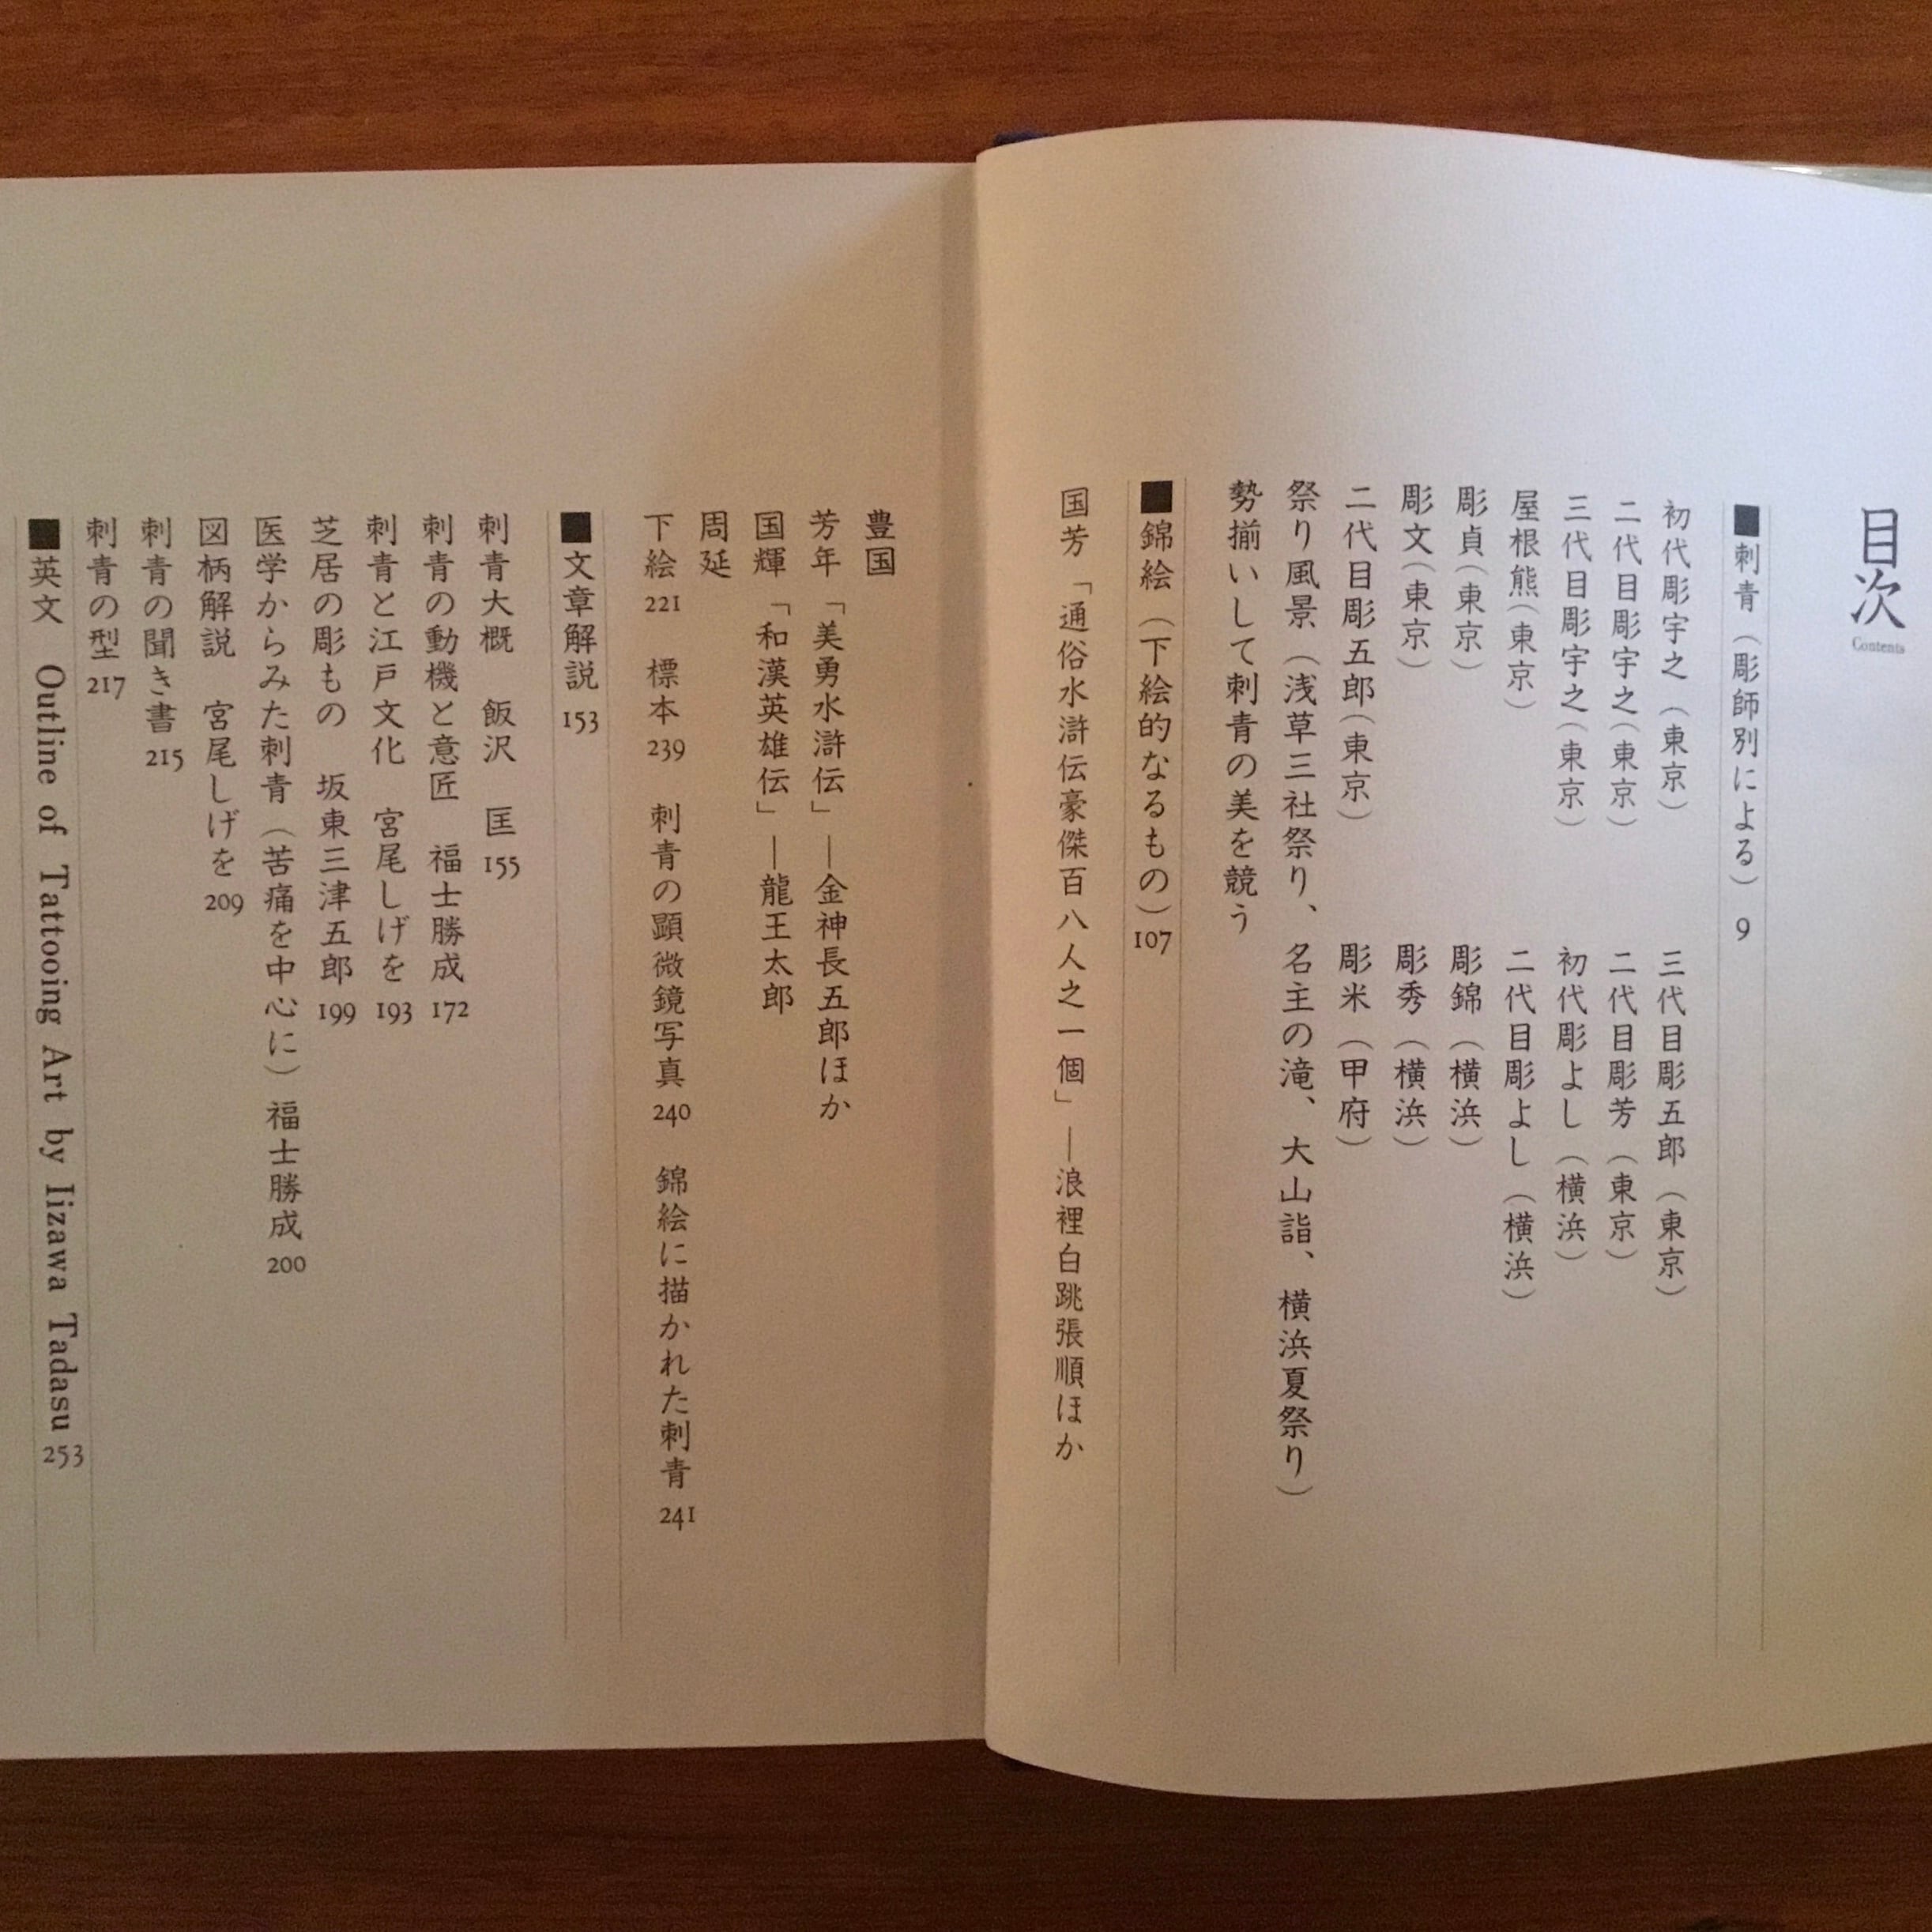 目次
Contents
■刺青（彫師別による） 9
初代彫宇之（東京）
三代目彫五郎（東京）
二代目彫宇之（東京）
二代目彫芳（東京）
三代目彫宇之（東京）
初代彫よし（横浜）
屋根熊（東京）
二代目彫よし（横浜）
彫貞（東京）
彫錦（横浜）
彫文（東京）
彫秀（横浜）
二代目彫五郎（東京）
彫米（甲府）
祭り風景（浅草三社祭り、名主の滝、大山詣、横浜夏祭り）
勢揃いして刺青の美を競う
■錦絵（下絵的なるもの）107
国芳「通俗水滸伝豪傑百八人之一個」―浪裡白跳張順ほか
豊国
芳年「美勇水滸伝」―金神長五郎ほか
国輝「和漢英雄伝」―龍王太郎
周延
下絵 221 標本 239 刺青の顕微鏡写真 240 錦絵に描かれた刺青 241
■文章解説 153
刺青大概 飯沢 匡 155
刺青の動機と意匠 福士勝成 172
刺青と江戸文化 宮尾しげを 193
芝居の彫もの 坂東三津五郎 199
医学からみた刺青（苦痛を中心に）福士勝成 200
図柄解説 宮尾しげを 209
刺青の聞き書 215
刺青の型 217
■英文 Outline of Tattooing Art by Iizawa Tadasu 253